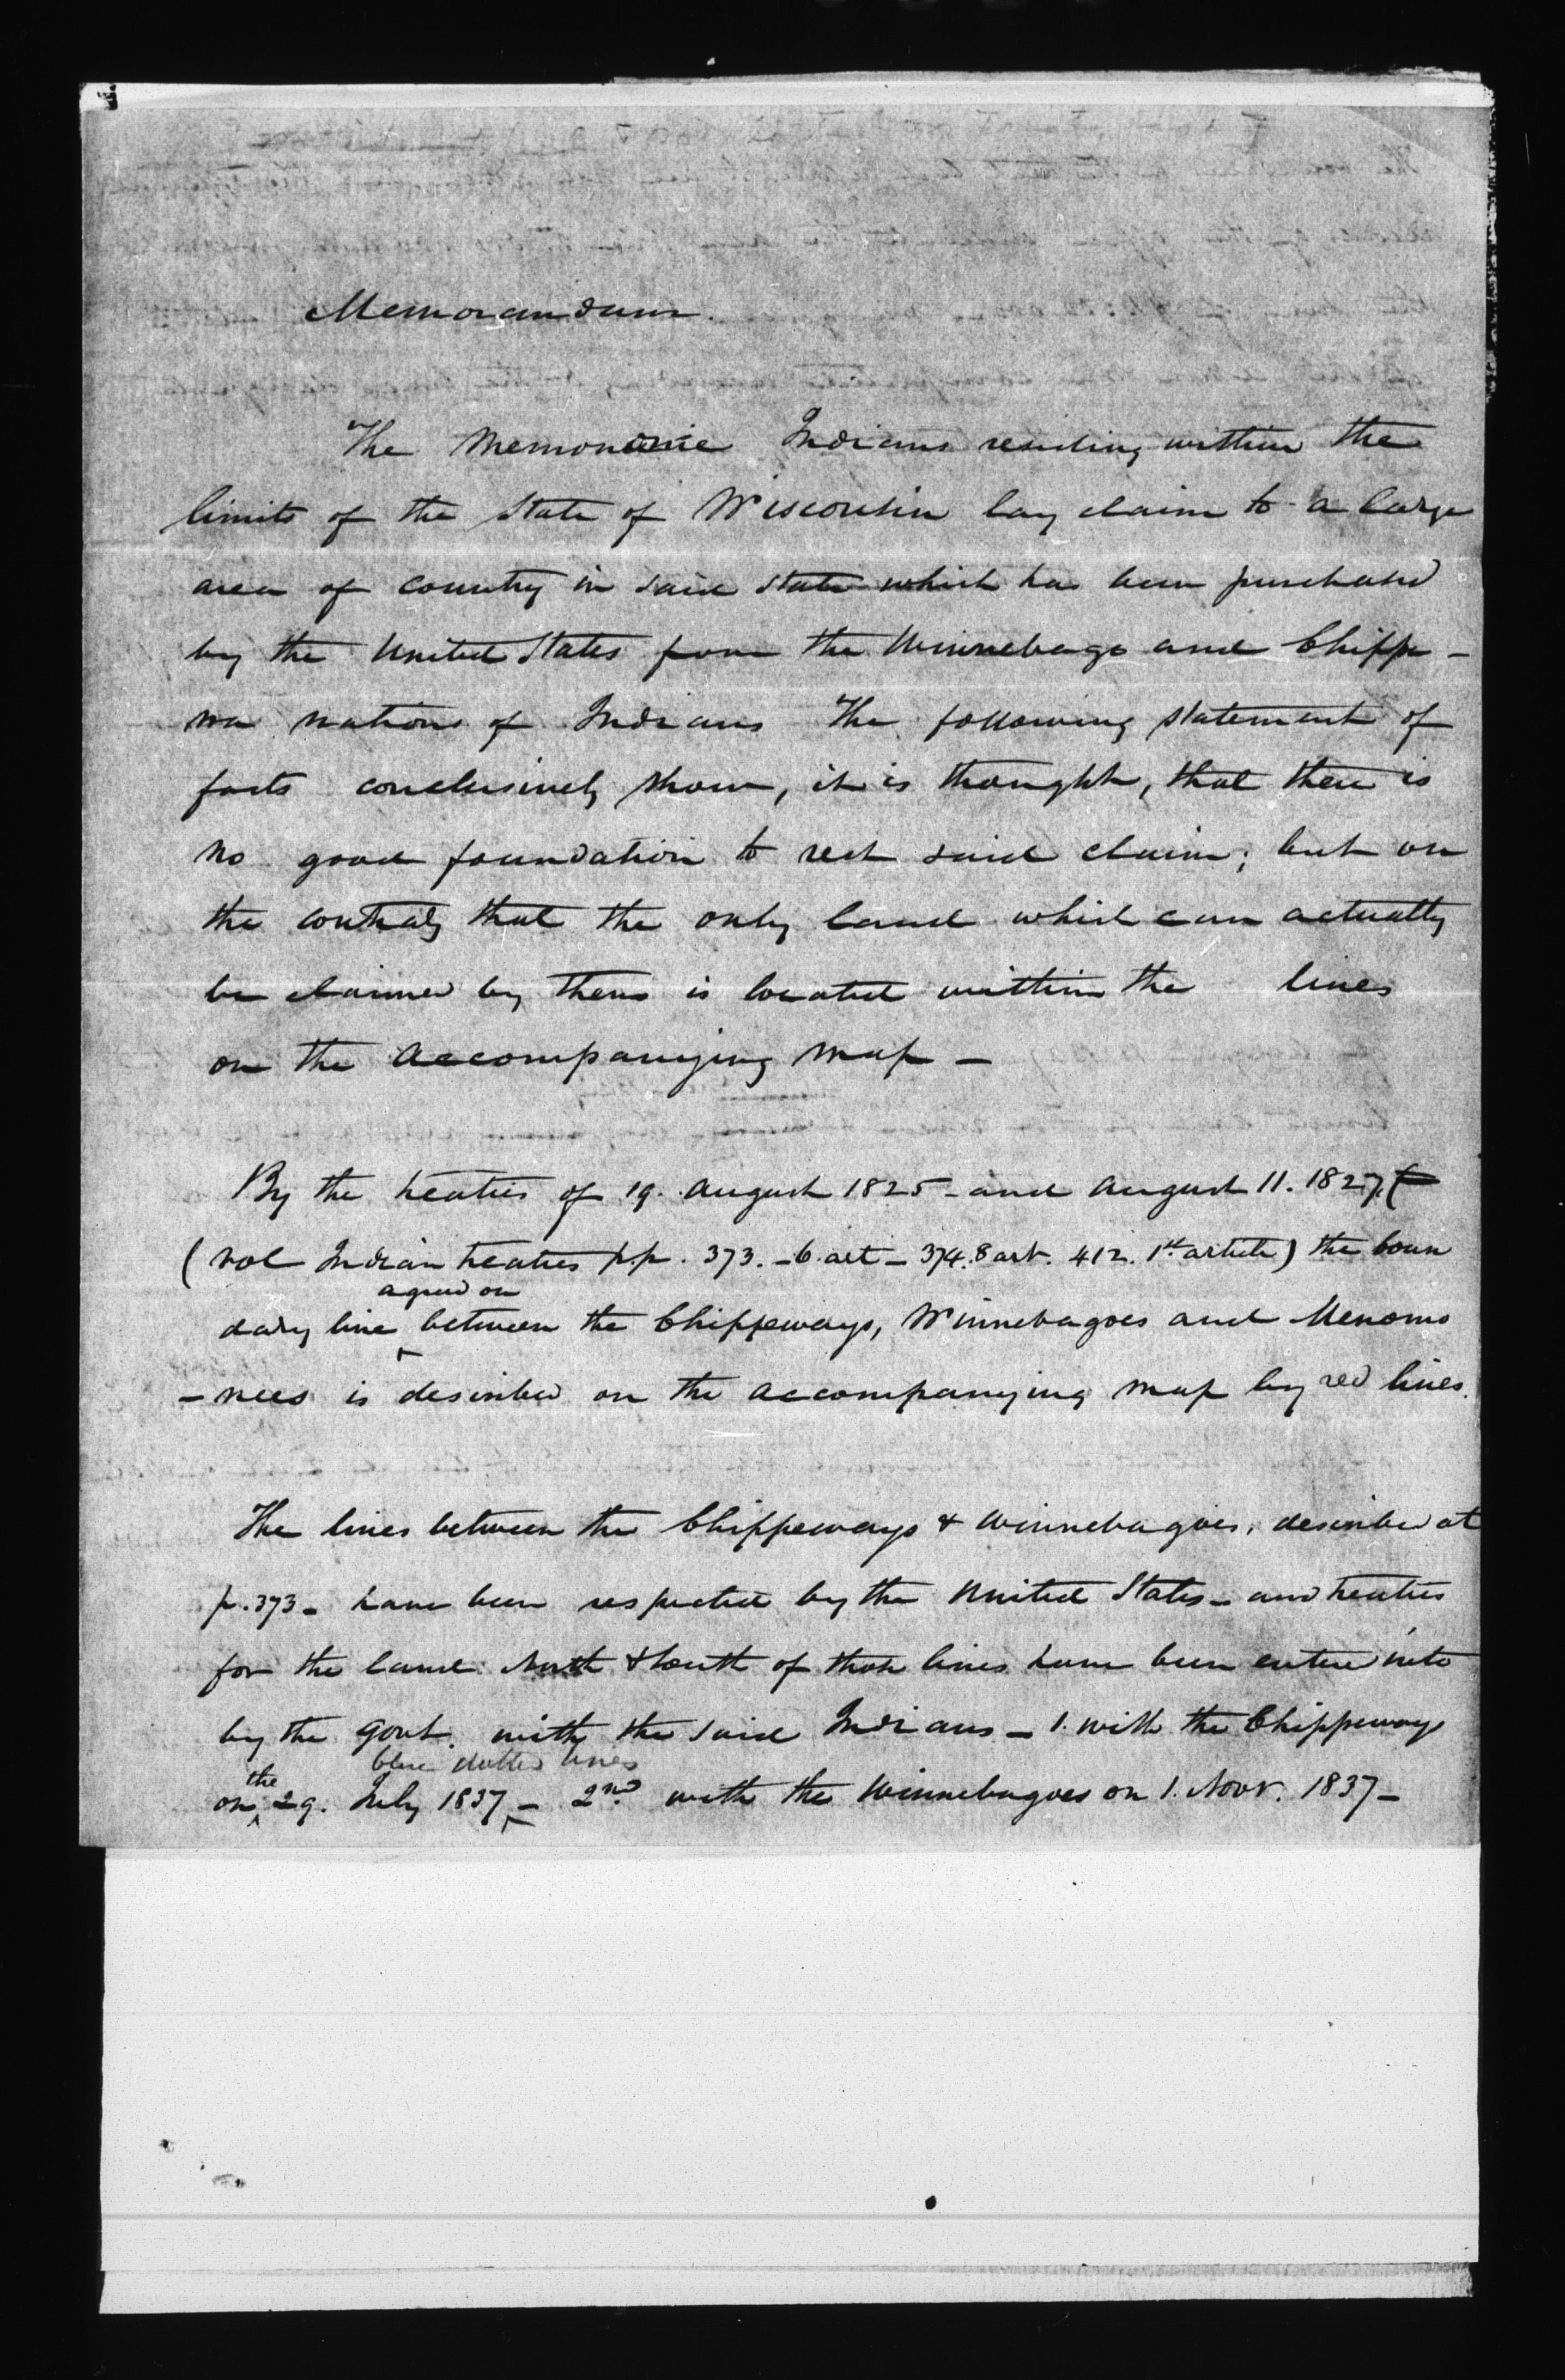 Memorandum.
The Memonie Indians residing within the
limits of the State of Wisconsin lay claim to a large
area of country in said State which has been purchased
by the United States from the Winnebago and Chippe-
wa nations of Indians The following statement of
facts conclusively show, it is thought, that there is
no good foundation to rest said claim; but on
the contrary that the only land which can actually
be claimed by them is located within the lines
on the accompanying map -
By the treaties of 19. August 1825 - and August 11. 1827,
(vol Indian treaties p.p. 373. - 6. art - 374. 8 art. 412. 1st article) the boun
agreed on
dary line between the Chippeways, Winnebagoes and Menomo
- nees is described on the accompanying map by red lines.
The lines between the Chippeways & Winnebagoes, described at
p. 373 - have been respected by the United States - and treaties
for the land North & South of those lines have been entered into
by the Govt. with the said Indians - 1. with the Chippeways
the blue dotted lines
on 29. July 1837 - 2nd with the Winnebagoes on 1. Novr. 1837 -